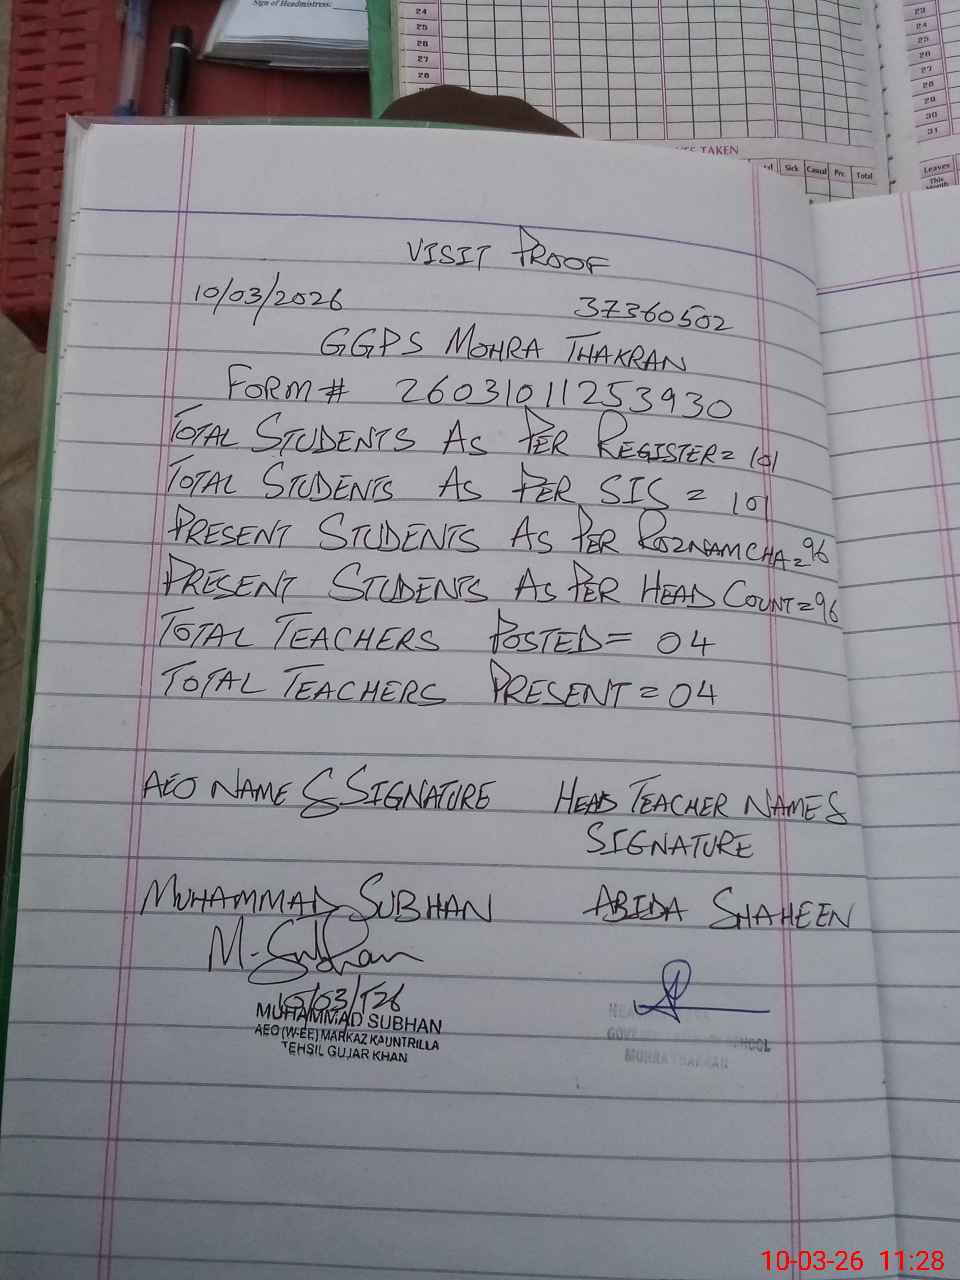 Sign of Headmistress:
24
25
26
27
28
23
24
25
26
27
28
29
30
31
TAKEN
Sick Casual Prv. Total
Leaves
This
Month
VISIT PROOF
10/03/2026 37360502
GGPS MOHRA THAKRAN
FORM # 26031011253930
TOTAL STUDENTS AS PER REGISTER = 101
TOTAL STUDENTS AS PER SIS = 101
PRESENT STUDENTS AS PER ROZNAMCHA = 96
PRESENT STUDENTS AS PER HEAD COUNT = 96
TOTAL TEACHERS POSTED = 04
TOTAL TEACHERS PRESENT = 04
AEO NAME & SIGNATURE HEAD TEACHER NAME &
SIGNATURE
MUHAMMAD SUBHAN ABIDA SHAHEEN
M. Subhan
10/03/26
MUHAMMAD SUBHAN
AEO (W-EE) MARKAZ KAUNTRILLA
TEHSIL GUJAR KHAN
SCHOOL
MOHRA THAKRAN
10-03-26 11:28